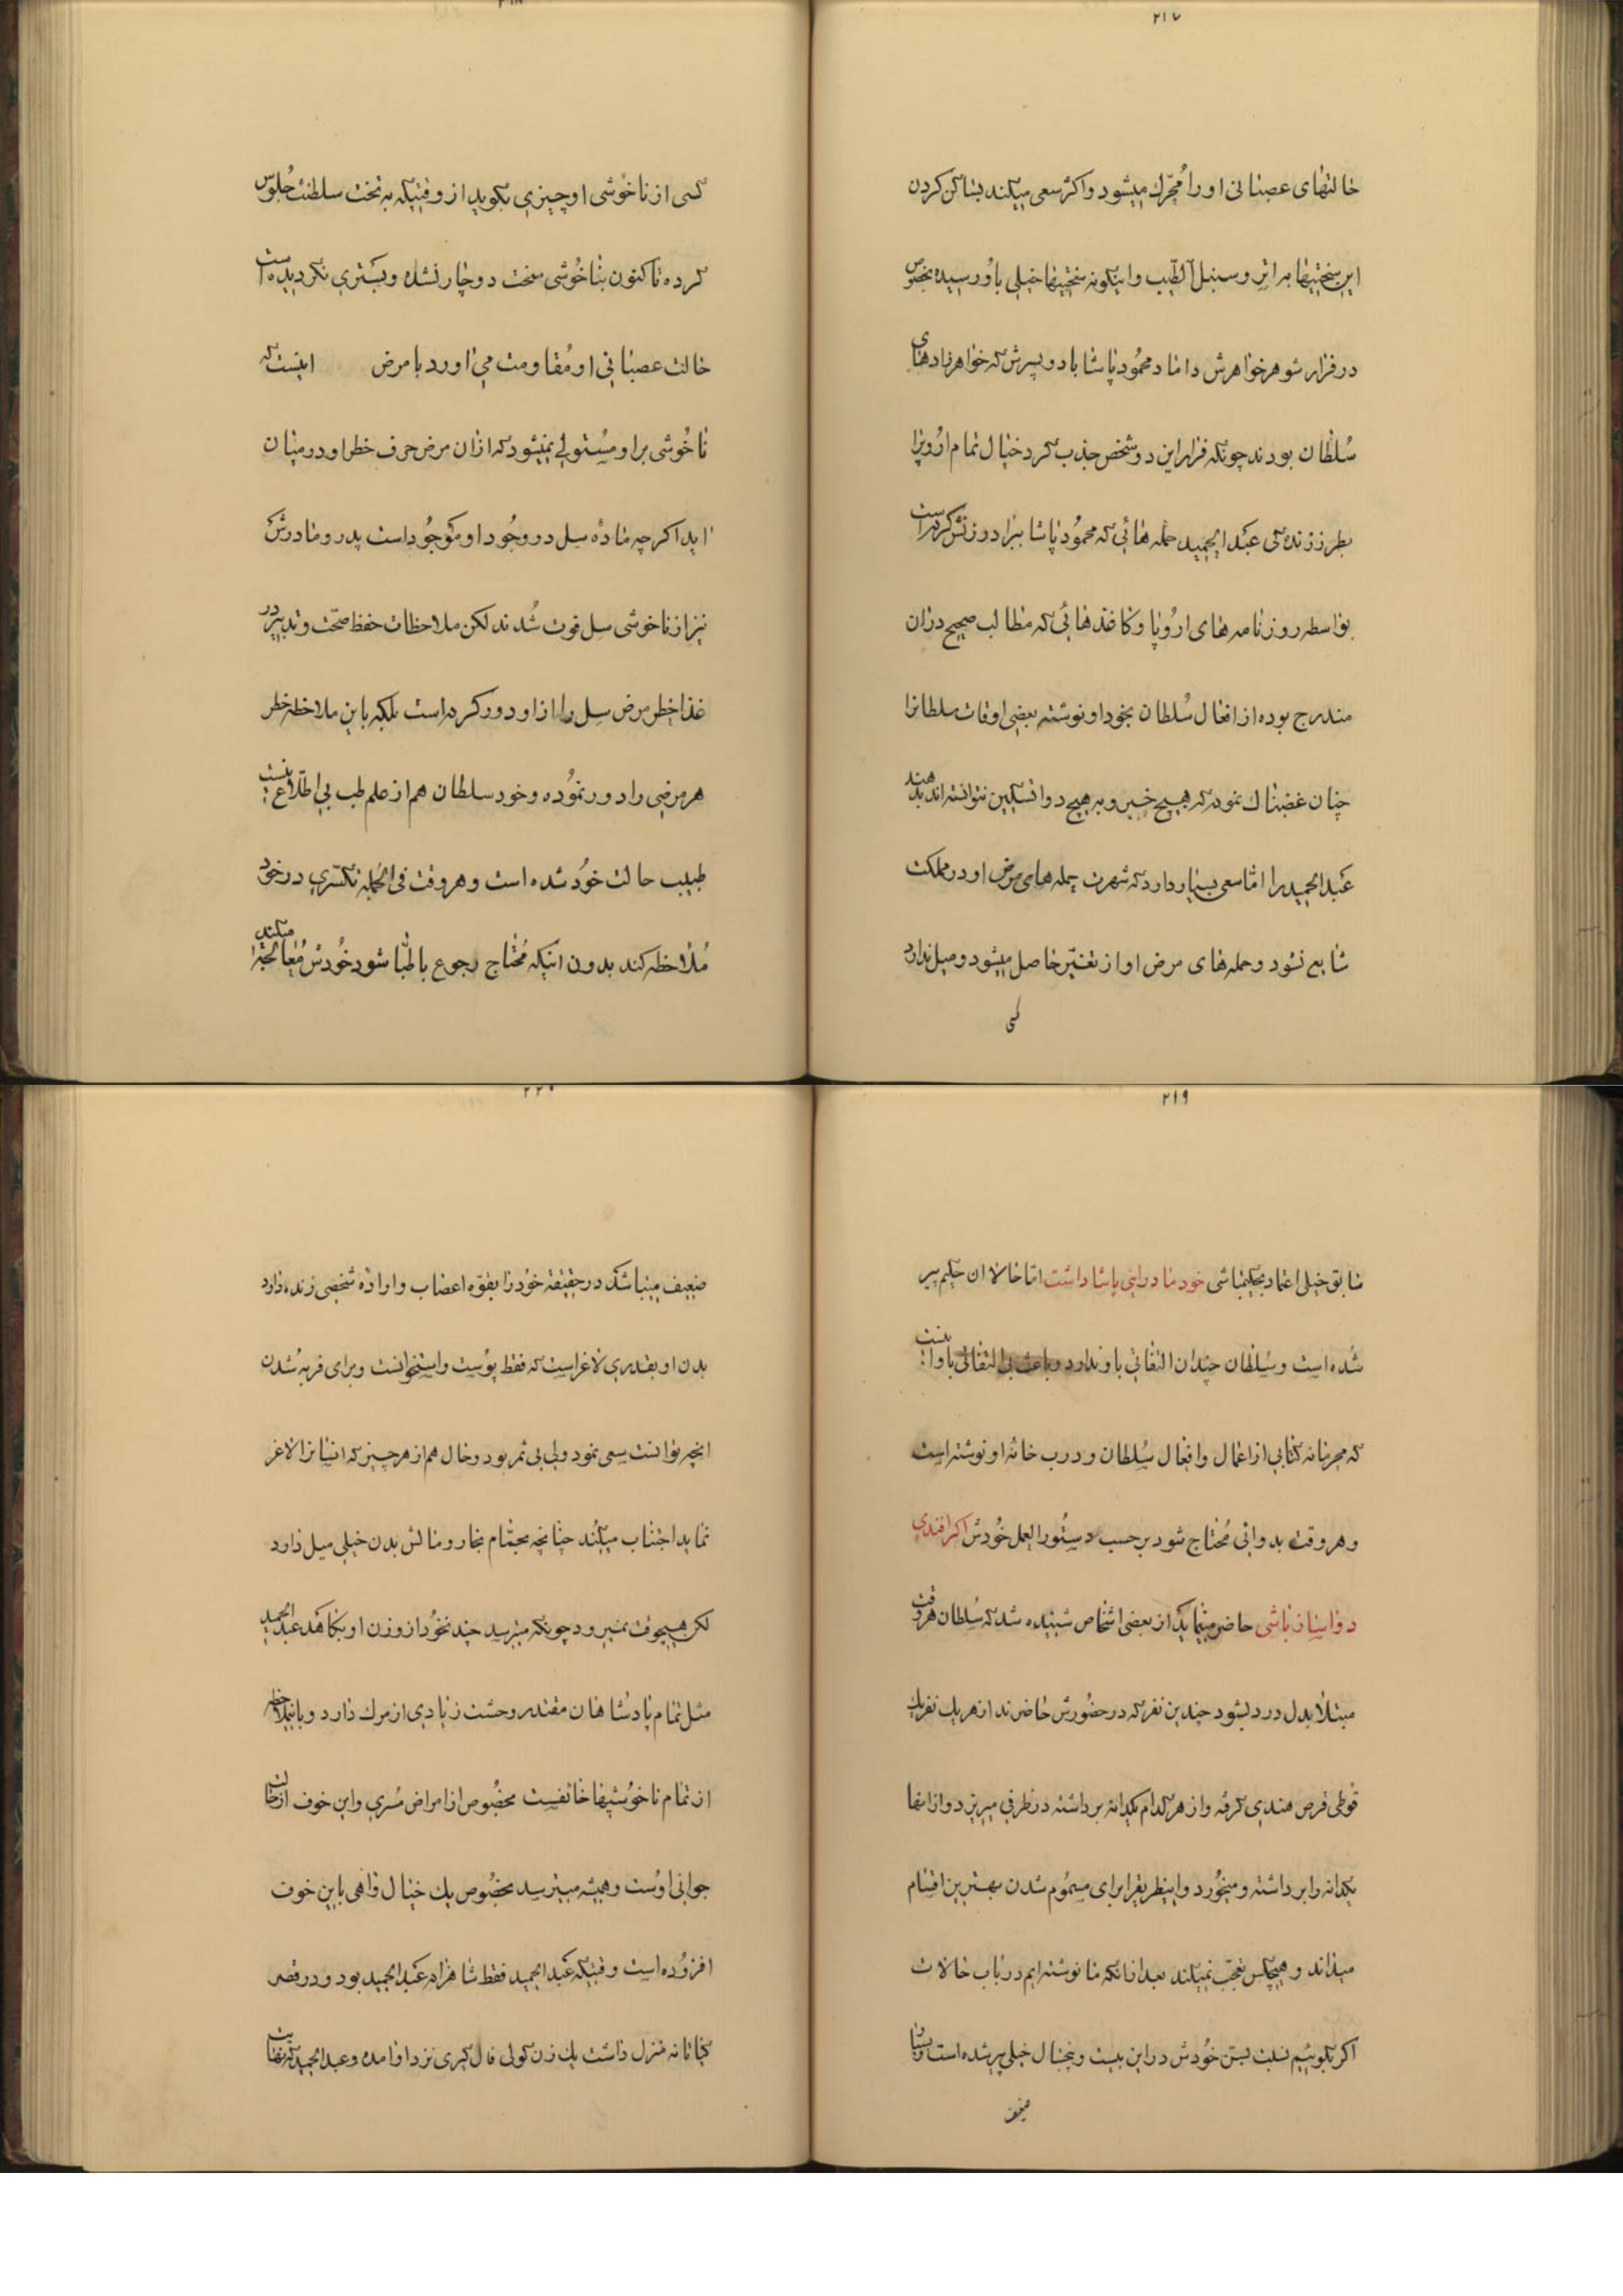 ۲۱۷
حالتهای عصبانی او را مُحرّک میشود و اکثر سعی میکند بساکن کردن
این سختیها به اتر و سنبل الطیب و اینگونه سختیها خیلی باو رسیده بخصوص
در فرار شوهر خواهرش داماد محمُود پاشا با دو پسرش که خواهرزادهای
سُلطان بودند چونکه فرار این دو شخص جذب کرد خیال تمام ارُوپرا
بطرز زندهکی عبد الحمید حمله هائی که محمُود پاشا ببرادر زنش کرده است
بواسطه روزنامه های ارُوپا و کاغذهائی که مطالب صحیح دران
مندرج بوده از افعال سُلطان بخود او نوشته بعضی اوقات سلطانرا
چنان غضبناک نموده که هیچ خبر و به هیچ دوا تسکین نتوانسته اند بدهند
عبد الحمید را امّا سعی بسیار دارد که شهرت حمله های مرض او در مملکت
شایع نشود و حمله های مرض او از تغیّر حاصل میشود و میل ندارد
کسی
۲۱۸
کسی از ناخوشی او چیزی بگوید از وقتیکه به تخت سلطنت جُلوس
کرده تا کنون بناخُوشی سخت دوچار نشده و بستری نگردیده است
حالت عصبانی او مُقاومت می اورد با مرض اینست که
ناخُوشی بر او مُستولی نمیشود که ازان مرض حرف خطر او در میان
اید اکرچه مادّه سل در وجُود او موجُود است پدر و مادرش
نیز از ناخوشی سل فوت شُدند لکن ملاحظات حفظ صحّت و تدبیر در
غذا خطر مرض سل را از او دور کرده است بلکه باین ملاحظه خطر
هر مرضی را دور نمُوده و خود سلطان هم از علم طب بی اطّلاع نیست
طبیب حالت خُود شده است و هر وقت فی الجُمله تکسّری در خود
مُلاحظه کند بدون اینکه مُحتاج رجوع باطبّا شود خُودش مُعالجه میکند
۲۱۹
سابق خیلی اعتماد بحکیمباشی خود داشت امّا حالا ان حکیم پیر
شُده است و سُلطان چندان التفاتی باو ندارد و باعث بی التفاتی باو اینست
که محرمانه کتابی از اعمال و افعال سُلطان و درب خانهٔ او نوشته است
و هر وقت بدوائی مُحتاج شود بر حسب دستُور العمل خُودش اکرافندی
دواساز باشی حاضر مینماید از بعضی اشخاص شنیده شد که سُلطان هر وقت
مبتلا بدل درد بشود چندین نفر که در حضُورش حاضرند از هر یک نفر یک
قوطی قرص هندی کرفته و از هر کدام یکدانه برداشته در ظرفی میریزد و از انها
یکدانه را برداشته و میخُورد و اینطریقرا برای مسمُوم شدن بهترین اقسام
میداند و هیچکس تعجّب نمیکند بعد از انکه ما نوشته ایم در باب حالات
اکر بکوئیم نسبت بسن خُودش در این بیست و پنجسال خیلی پیر شده است و بسیار
ضعیف
۲۲۰
ضعیف میباشد در حقیقة خُود را بقوّه اعصاب و ارادهٔ شخصی زنده دارد
بدن او بقدری لاغر است که فقط پوُست و استخوانست و برای فربه شُدن
انچه توانست سعی نمود ولی بی ثمر بود و حال هم از هر چیز که انسانرا لاغر
نماید اجتناب میکُند چنانچه بحمّام بخار و مالش بدن خیلی میل دارد
لکن هیچوقت نمیرود چونکه میترسد چند نخُود از وزن او بکاهد عبد الحمید
مثل تمام پادشاهان مقتدر وحشت زیادی از مرک دارد و باینملاحظه
از تمام ناخوُشیها خائفست مخصُوص از امراض مُسری و این خوف از زمان
جوانی اوُست و همیشه میترسد مخصُوص یک خیال واهی باین خوف
افزوُده است وقتیکه عبد الحمید فقط شاهزاده عبد الحمید بود و در قصر
منزل داشت یک زن کولی فال کیری نزد او امده و عبد الحمید